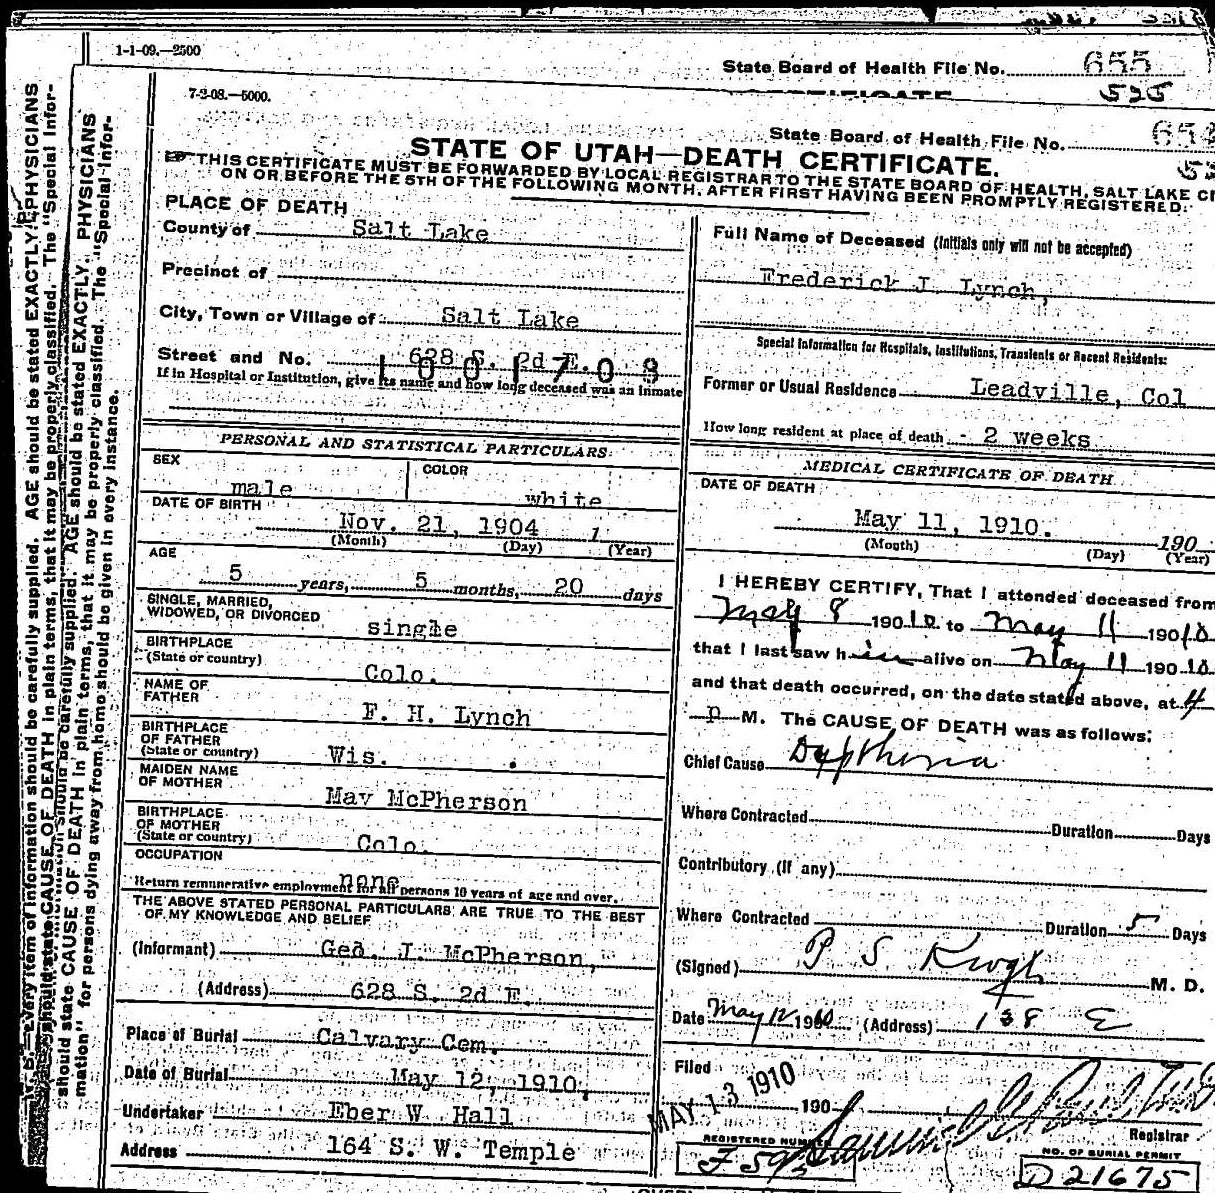 1-1-09.—2500
State Board of Health File No. 655
525
7-2-08.—5000.
State Board of Health File No. 654
STATE OF UTAH—DEATH CERTIFICATE.
THIS CERTIFICATE MUST BE FORWARDED BY LOCAL REGISTRAR TO THE STATE BOARD OF HEALTH, SALT LAKE CI
ON OR BEFORE THE 5TH OF THE FOLLOWING MONTH, AFTER FIRST HAVING BEEN PROMPTLY REGISTERED.
PLACE OF DEATH
County of Salt Lake
Precinct of
City, Town or Village of Salt Lake
Street and No. 628 S. 2d E.
1001709
If in Hospital or Institution, give its name and how long deceased was an Inmate
PERSONAL AND STATISTICAL PARTICULARS
SEX male COLOR white
DATE OF BIRTH
Nov. 21, 1904 1
(Month) (Day) (Year)
AGE
5 years, 5 months, 20 days
SINGLE, MARRIED,
WIDOWED, OR DIVORCED single
BIRTHPLACE
(State or country) Colo.
NAME OF
FATHER F. H. Lynch
BIRTHPLACE
OF FATHER
(State or country) Wis.
MAIDEN NAME
OF MOTHER May McPherson
BIRTHPLACE
OF MOTHER
(State or country) Colo.
OCCUPATION
none
Return remunerative employment for all persons 10 years of age and over.
THE ABOVE STATED PERSONAL PARTICULARS ARE TRUE TO THE BEST
OF MY KNOWLEDGE AND BELIEF
(Informant) Geo. J. McPherson,
(Address) 628 S. 2d E.
Place of Burial Calvary Cem.
Date of Burial May 12, 1910.
Undertaker Eber W. Hall
Address 164 S. W. Temple
Full Name of Deceased (Initials only will not be accepted)
Frederick J. Lynch,
Special Information for Hospitals, Institutions, Transients or Recent Residents:
Former or Usual Residence Leadville, Col
How long resident at place of death 2 weeks
MEDICAL CERTIFICATE OF DEATH
DATE OF DEATH
May 11, 1910. 190
(Month) (Day) (Year)
I HEREBY CERTIFY, That I attended deceased from
May 8 19010 to May 11 19010
that I last saw him alive on May 11 19010
and that death occurred, on the date stated above, at 4
p M. The CAUSE OF DEATH was as follows:
Chief Cause Diptheria
Where Contracted Duration Days
Contributory (If any)
Where Contracted Duration 5 Days
(Signed) P S Keogh M. D.
Date May 12 1910 (Address) 138 E
Filed MAY 13 1910 190
Registrar
REGISTERED NUMBER
NO. OF BURIAL PERMIT
D 21675
N. B.—Every item of information should be carefully supplied. AGE should be stated EXACTLY. PHYSICIANS
should state CAUSE OF DEATH in plain terms, that it may be properly classified. The "Special Infor-
mation" for persons dying away from home should be given in every instance.